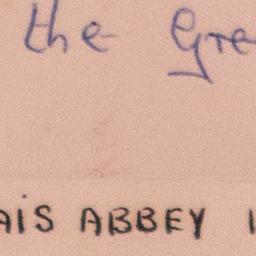 the Gre
AiS ABBEY